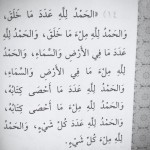 (١٤) «الْحَمْدُ لِلَّهِ عَدَدَ مَا خَلَقَ،
وَالْحَمْدُ لِلَّهِ مِلْءَ مَا خَلَقَ، وَالْحَمْدُ لِلَّهِ
عَدَدَ مَا فِي الْأَرْضِ وَالسَّمَاءِ، وَالْحَمْدُ
لِلَّهِ مِلْءَ مَا فِي الْأَرْضِ وَالسَّمَاءِ،
وَالْحَمْدُ لِلَّهِ عَدَدَ مَا أَحْصَى كِتَابُهُ،
وَالْحَمْدُ لِلَّهِ مِلْءَ مَا أَحْصَى كِتَابُهُ،
وَالْحَمْدُ لِلَّهِ عَدَدَ كُلِّ شَيْءٍ، وَالْحَمْدُ
لِلَّهِ مِلْءَ كُلِّ شَيْءٍ.